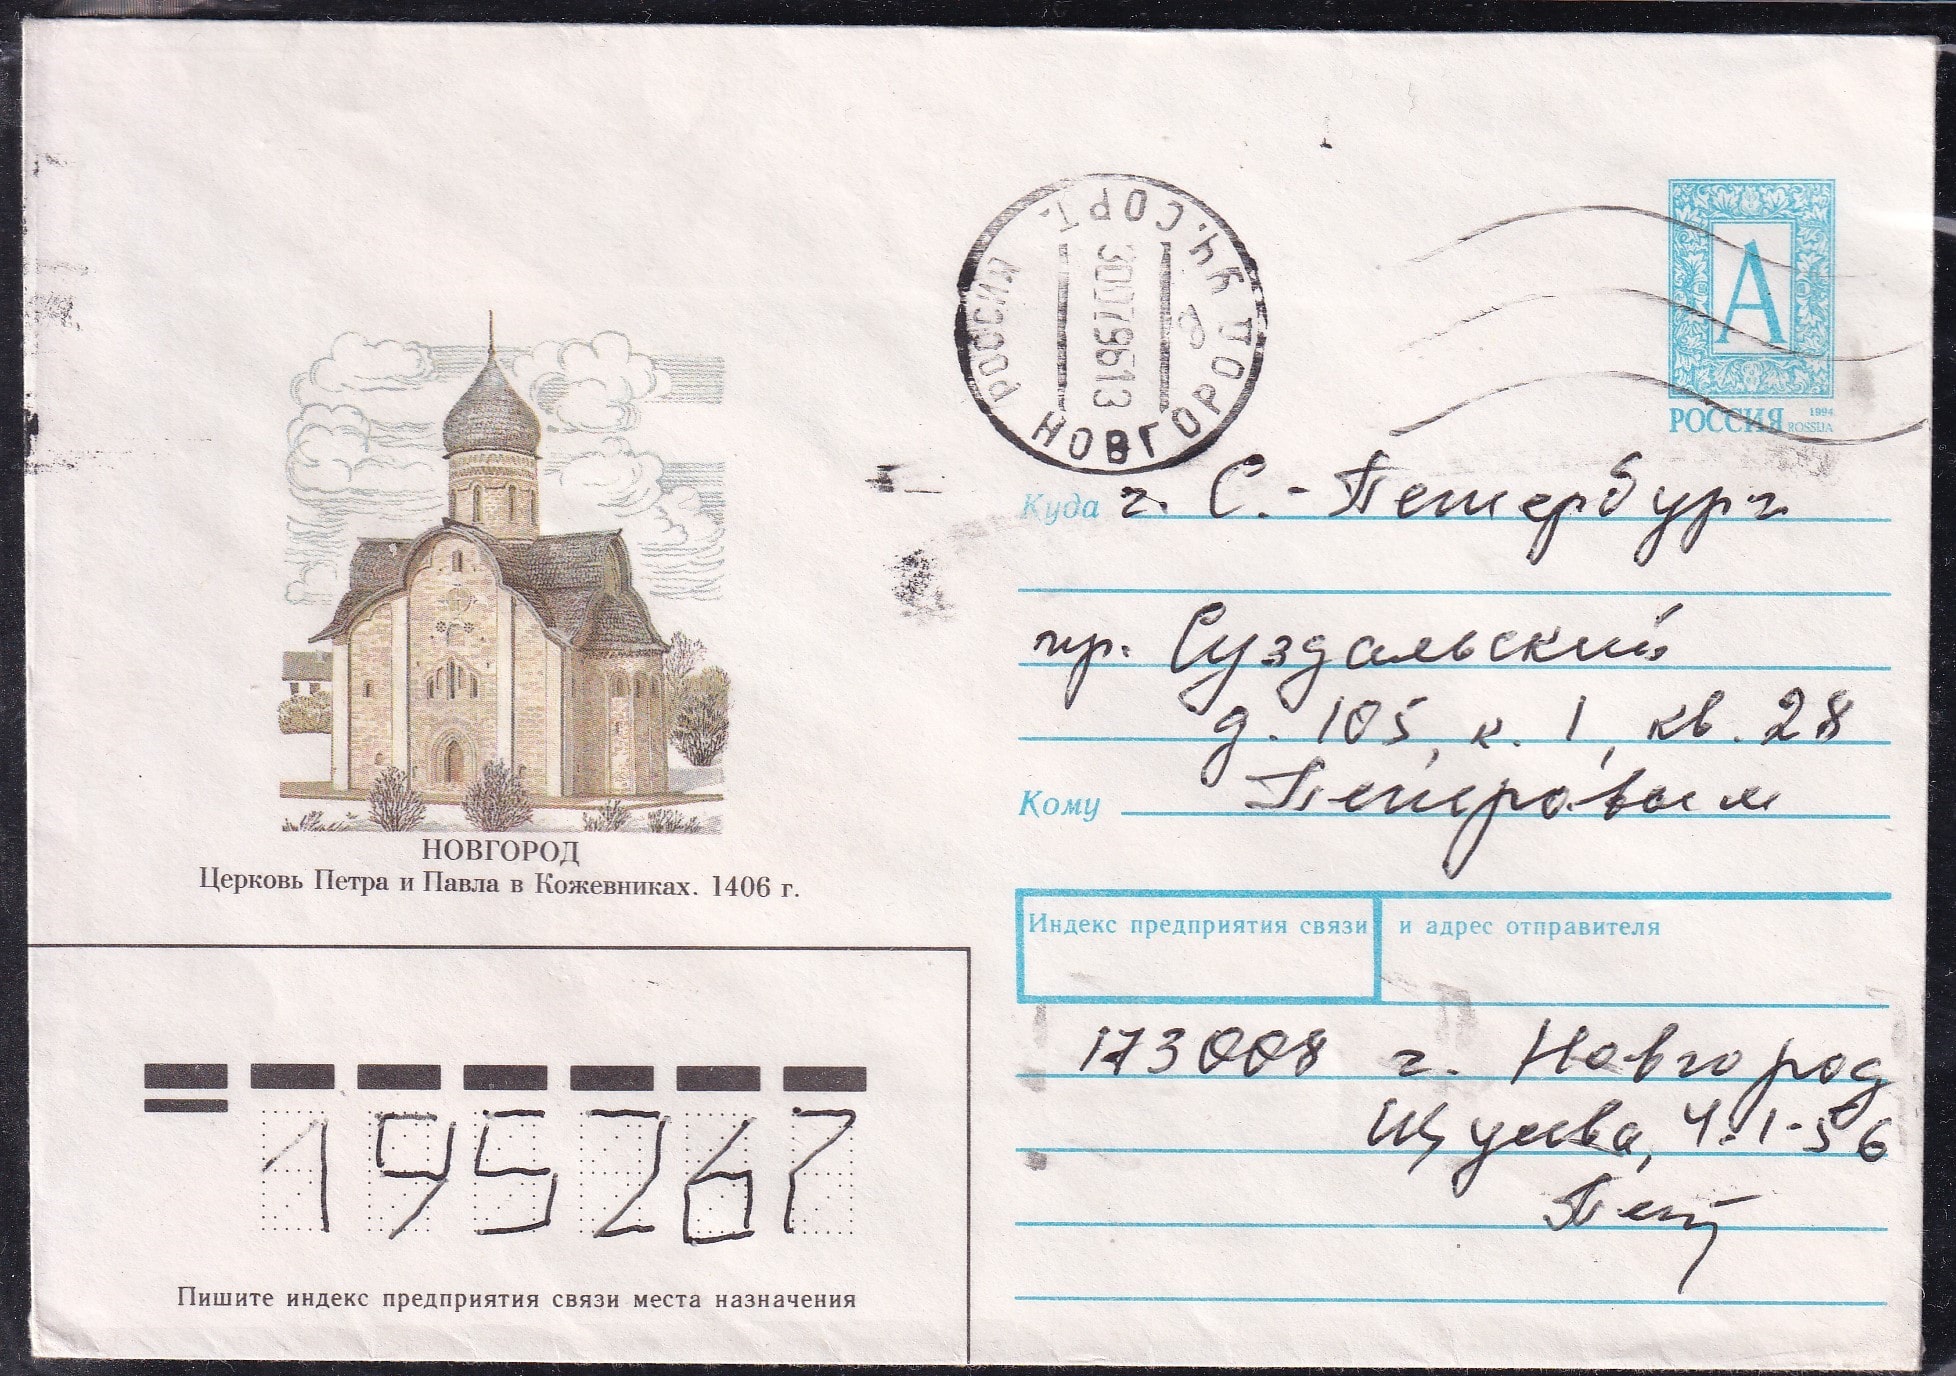 РОССИЯ НОВГОРОД ЦЧ. СОРТ.
30079613
А
РОССИЯ 1994
ROSSIJA
Куда г. С.-Петербург
пр. Суздальский
д. 105, к. 1, кв. 28
Кому Петровым
НОВГОРОД
Церковь Петра и Павла в Кожевниках. 1406 г.
Индекс предприятия связи и адрес отправителя
173008 г. Новгород
Щусева, 4-1-56
195267
Пишите индекс предприятия связи места назначения